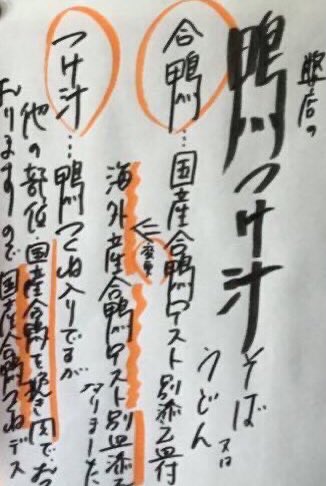 弊店の
鴨つけ汁そば又は
うどん
合鴨…国産合鴨ロースト別添え皿付
変更
海外産合鴨ロースト別皿添え
つけ汁…鴨つくね入りですが
他の部位、国産合鴨も挽き肉で
おりますので国産合鴨つくねデス